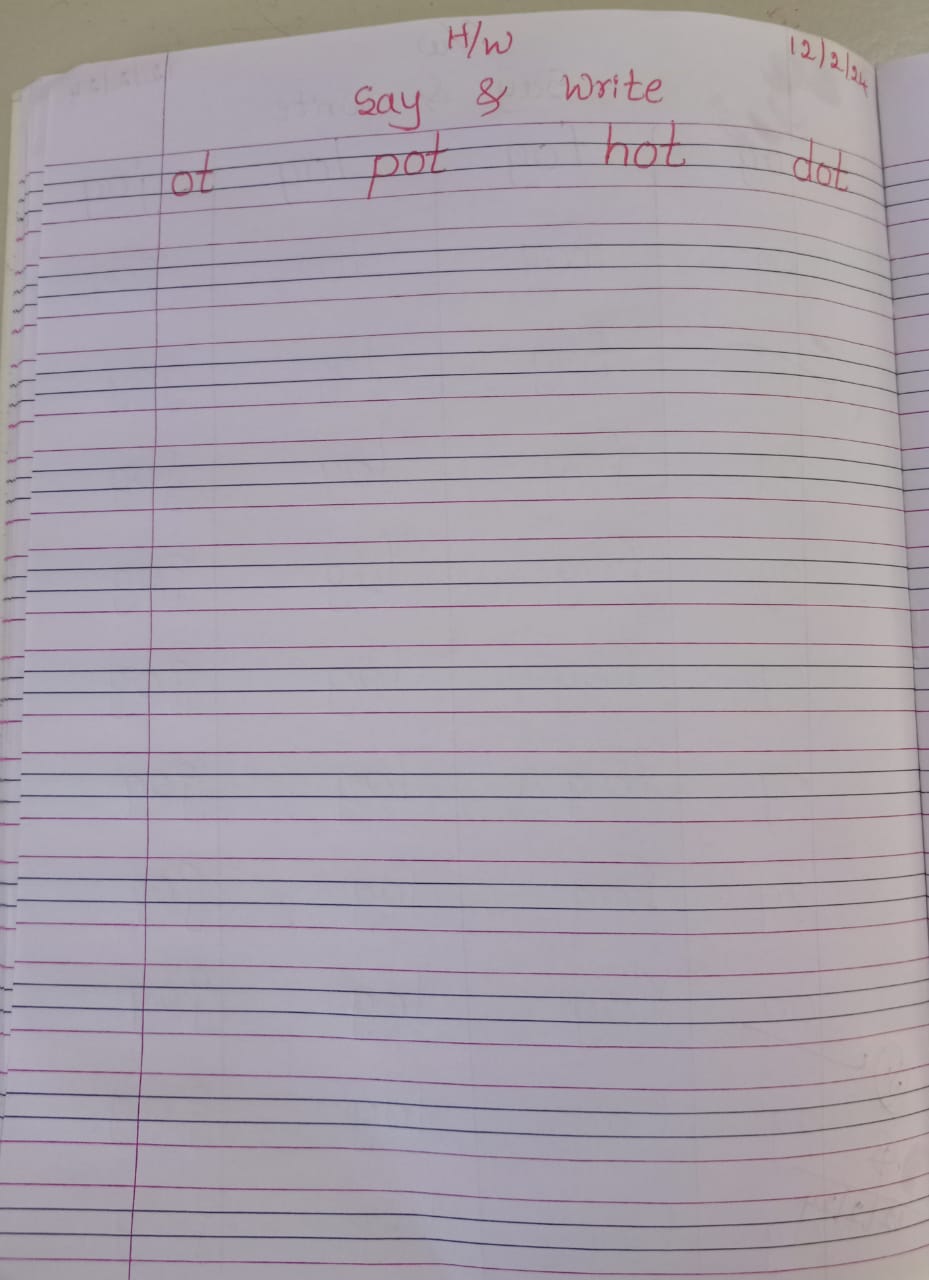 H/W 12/2/24
Say & Write
ot pot hot dot